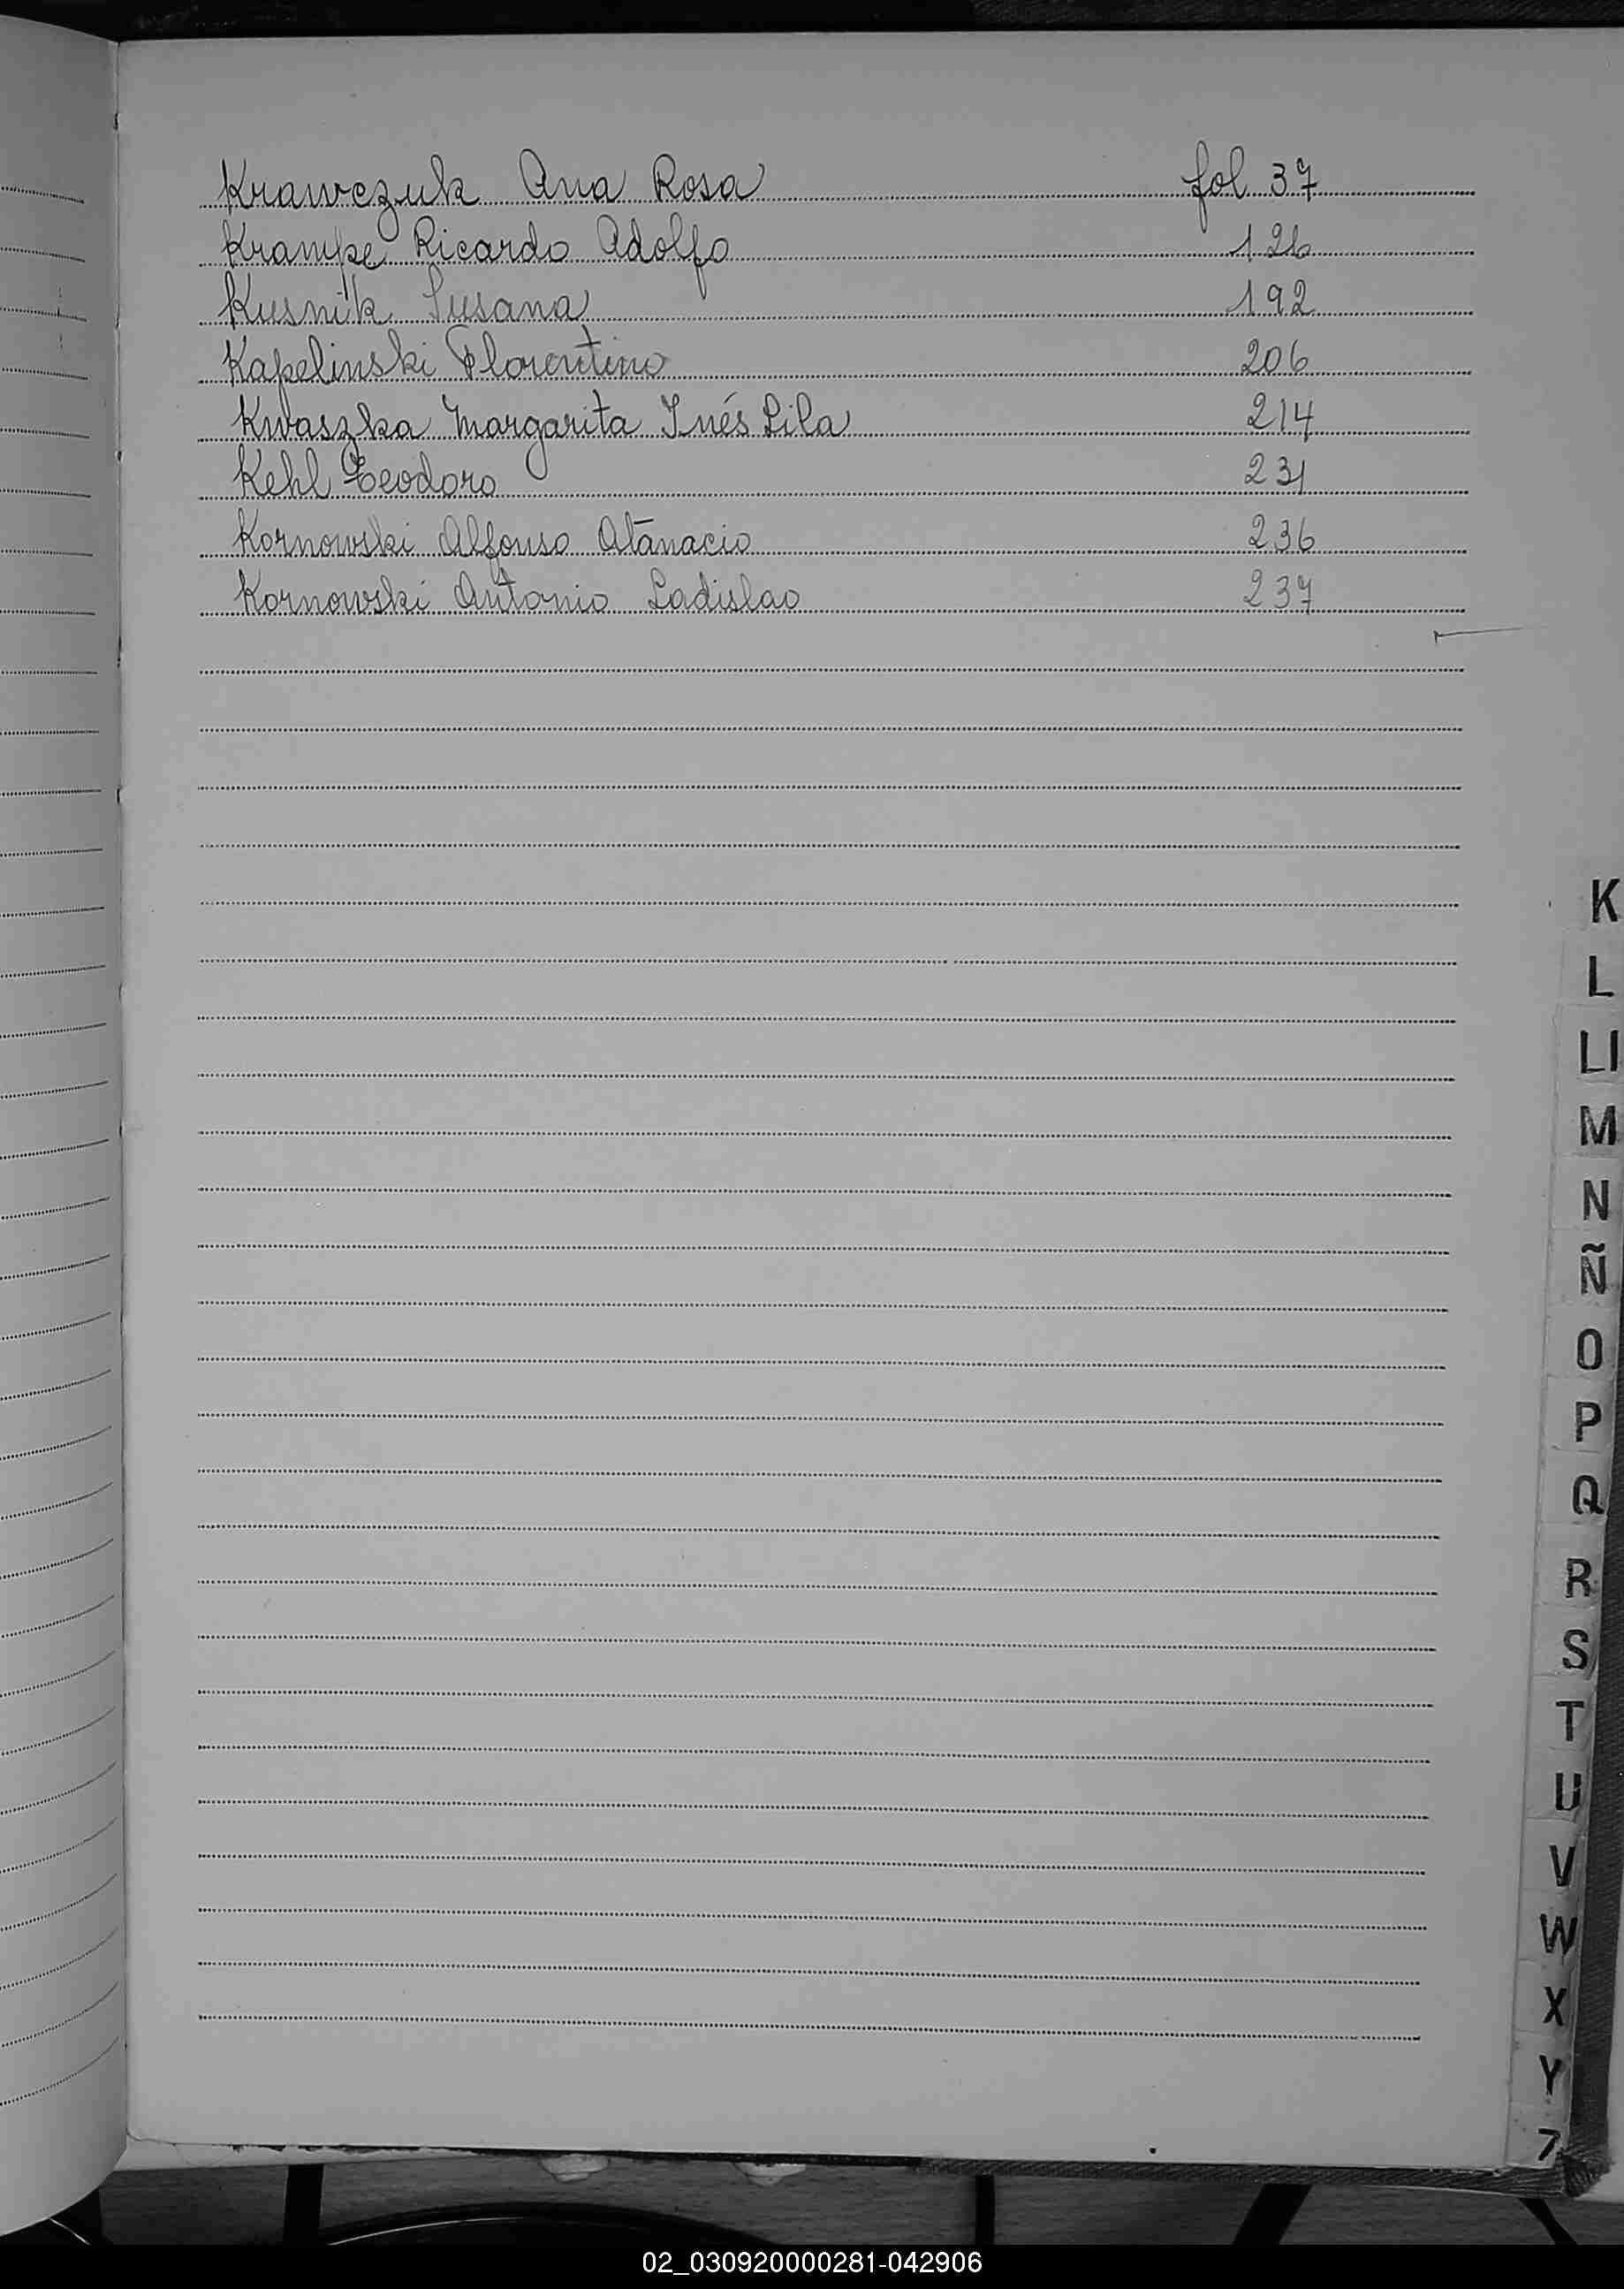 Krawczuk Ana Rosa fol 37
Krampe Ricardo Adolfo 126
Kusnik Susana 192
Kapelinski Florentino 206
Kwaszka Margarita Inés Lila 214
Kehl Teodoro 231
Kornowski Alfonso Atanacio 236
Kornowski Antonio Ladislao 237
K
L
Ll
M
N
Ñ
O
P
Q
R
S
T
U
V
W
X
Y
Z
02_030920000281-042906